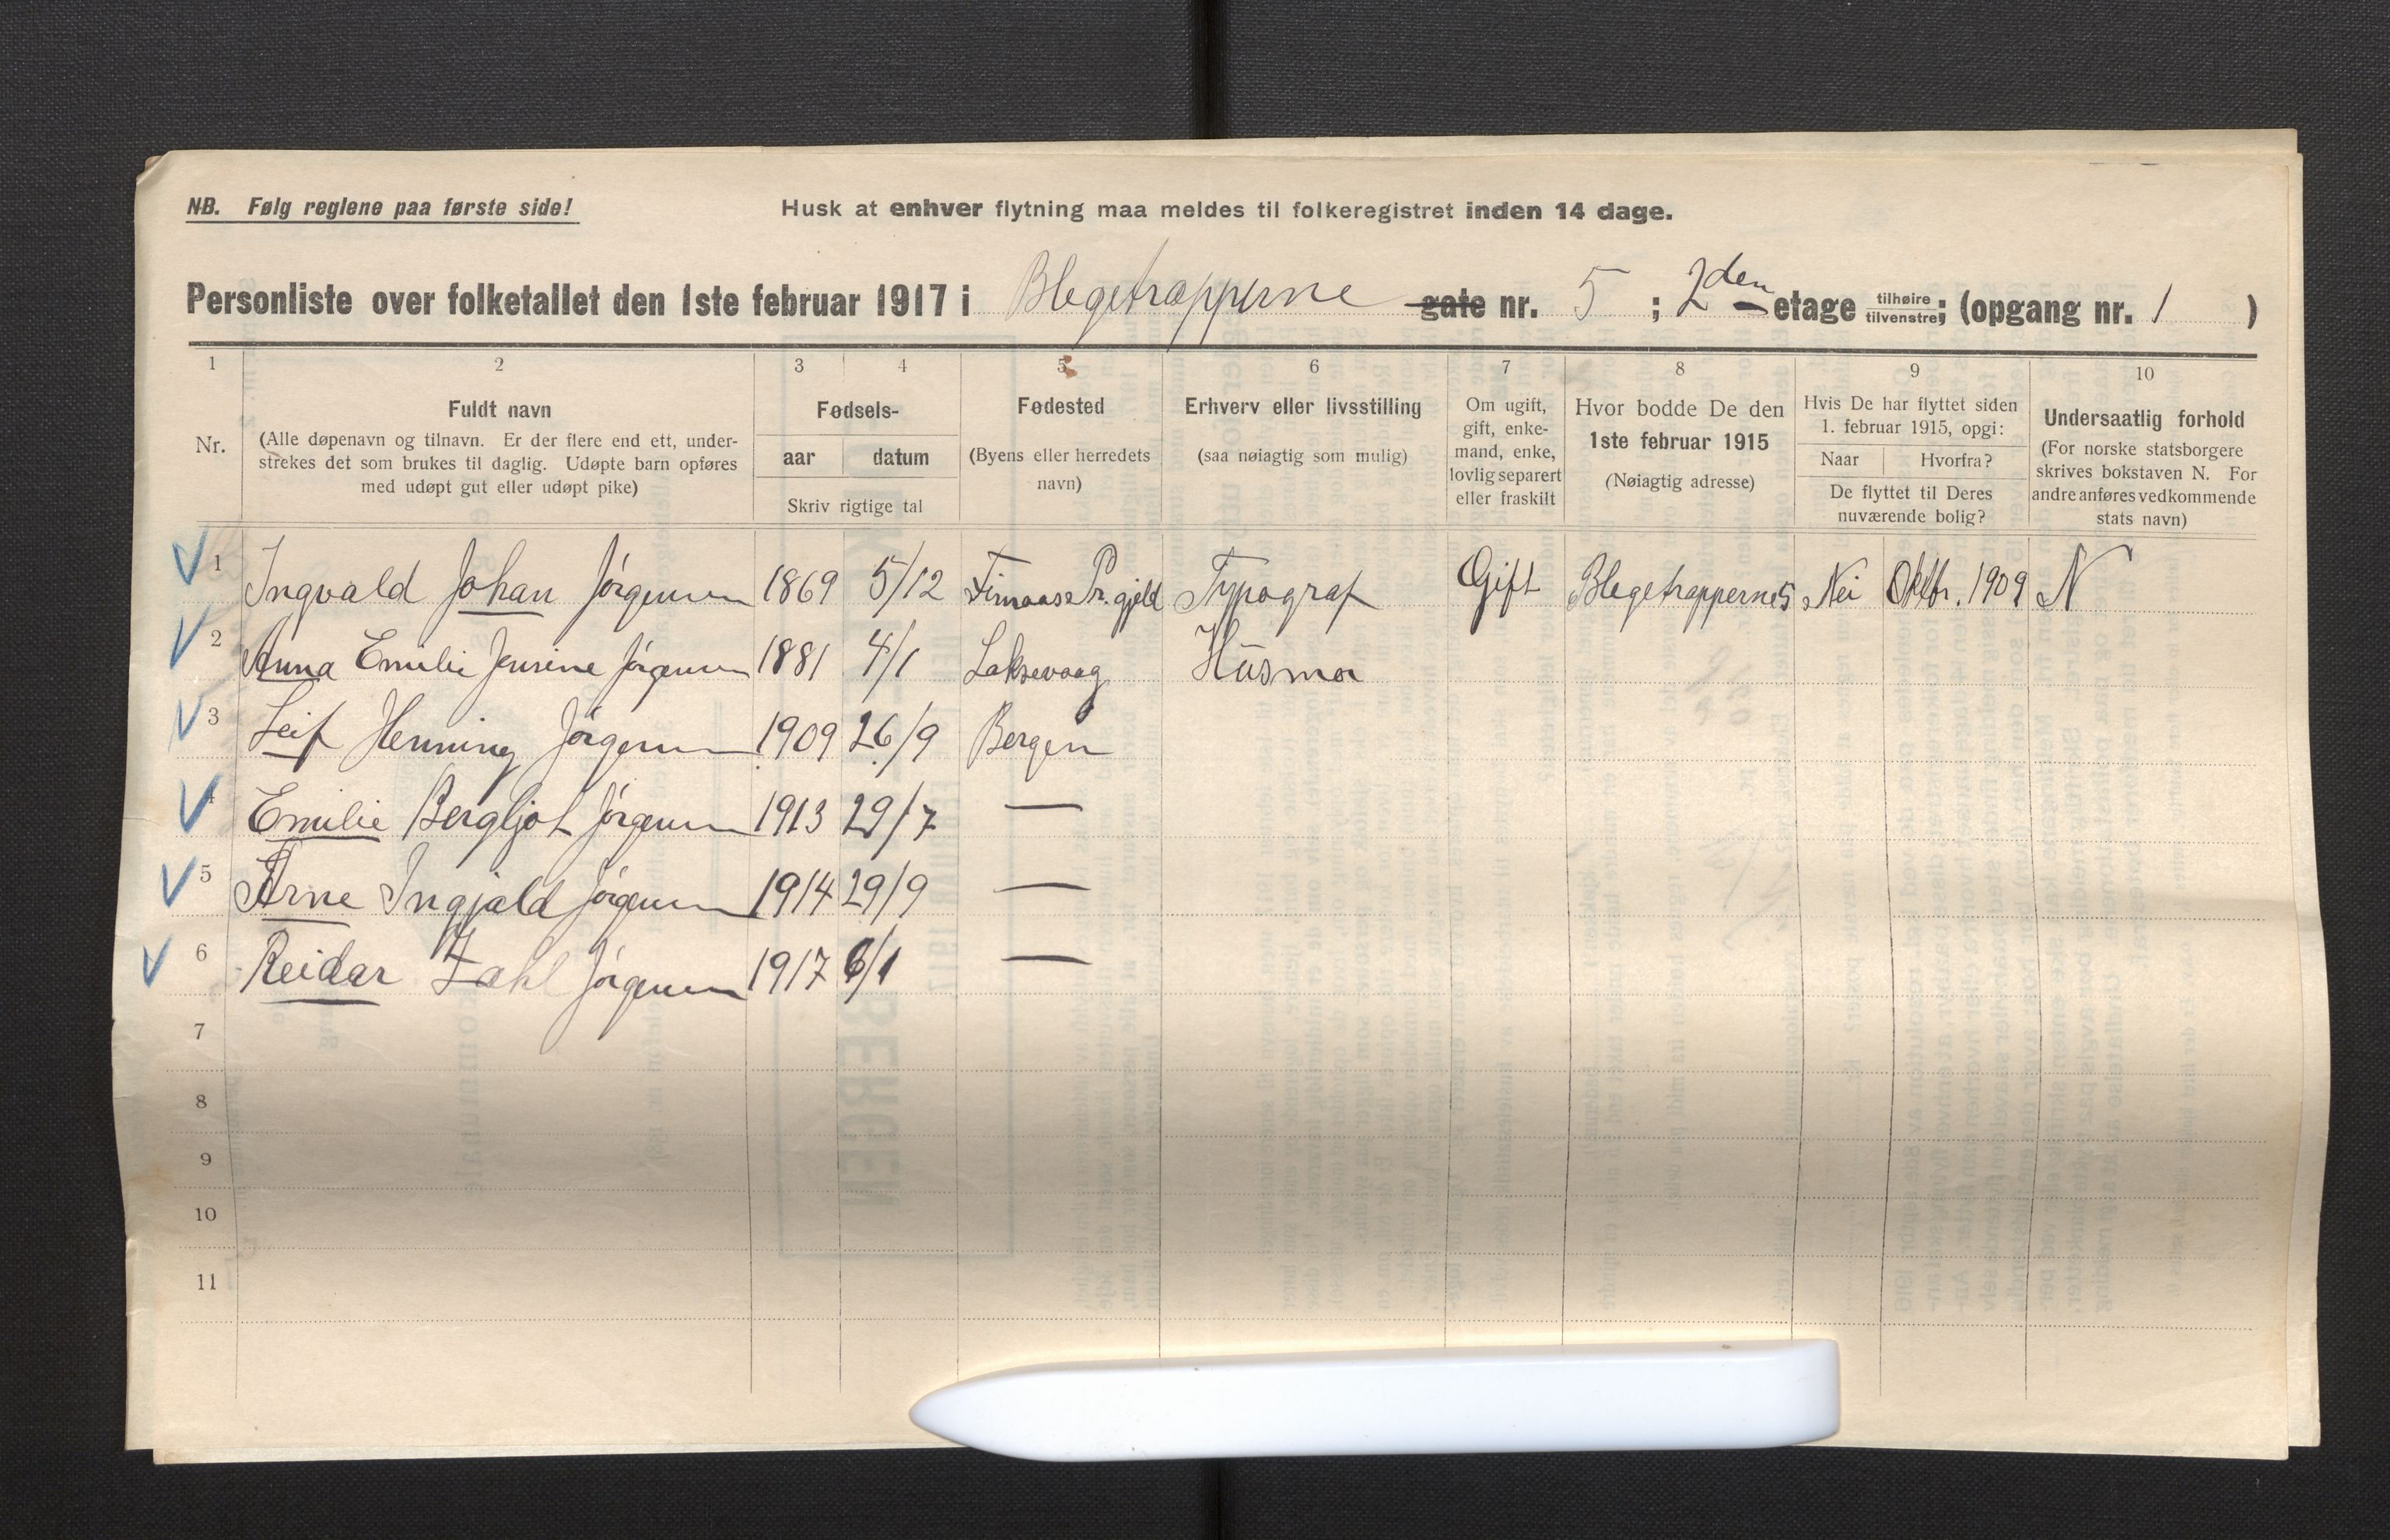 NB. Følg reglene paa første side!
Husk at enhver flytning maa meldes til folkeregistret inden 14 dage.
Personliste over folketallet den 1ste februar 1917 i Blegetrapperne gate nr. 5 ; 2den etage tilhøire tilvenstre; (opgang nr. 1 )
1 2 3 4 5 6 7 8 9 10
Nr.
Fuldt navn
(Alle døpenavn og tilnavn. Er der flere end ett, under-
strekes det som brukes til daglig. Udøpte barn opføres
med udøpt gut eller udøpt pike)
Fødsels-
aar datum
Skriv rigtige tal
Fødested
(Byens eller herredets
navn)
Erhverv eller livsstilling
(saa nøiagtig som mulig)
Om ugift,
gift, enke-
mand, enke,
lovlig separert
eller fraskilt
Hvor bodde De den
1ste februar 1915
(Nøiagtig adresse)
Hvis De har flyttet siden
1. februar 1915, opgi:
Naar Hvorfra?
De flyttet til Deres
nuværende bolig?
Undersaatlig forhold
(For norske statsborgere
skrives bokstaven N. For
andre anføres vedkommende
stats navn)
1 Ingvald Johan Jörgensen 1869 5/12 Finnaas Pr.gjeld Typograf Gift Blegetrapperne 5 Nei Oktbr. 1909 N
2 Anna Emilie Jensine Jörgensen 1881 4/1 Laksevaag Husmor
3 Leif Henning Jörgensen 1909 26/9 Bergen
4 Emilie Bergljot Jörgensen 1913 29/7 —
5 Arne Ingjald Jörgensen 1914 29/9 —
6 Reidar Zahl Jörgensen 1917 6/1 —
7
8
9
10
11